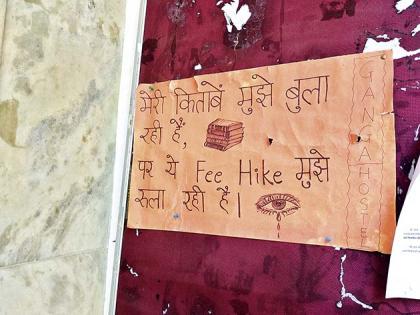 मेरी किताबें मुझे बुला
रही हैं,
पर ये Fee Hike मुझे
रुला रही है।
GANGA HOSTEL